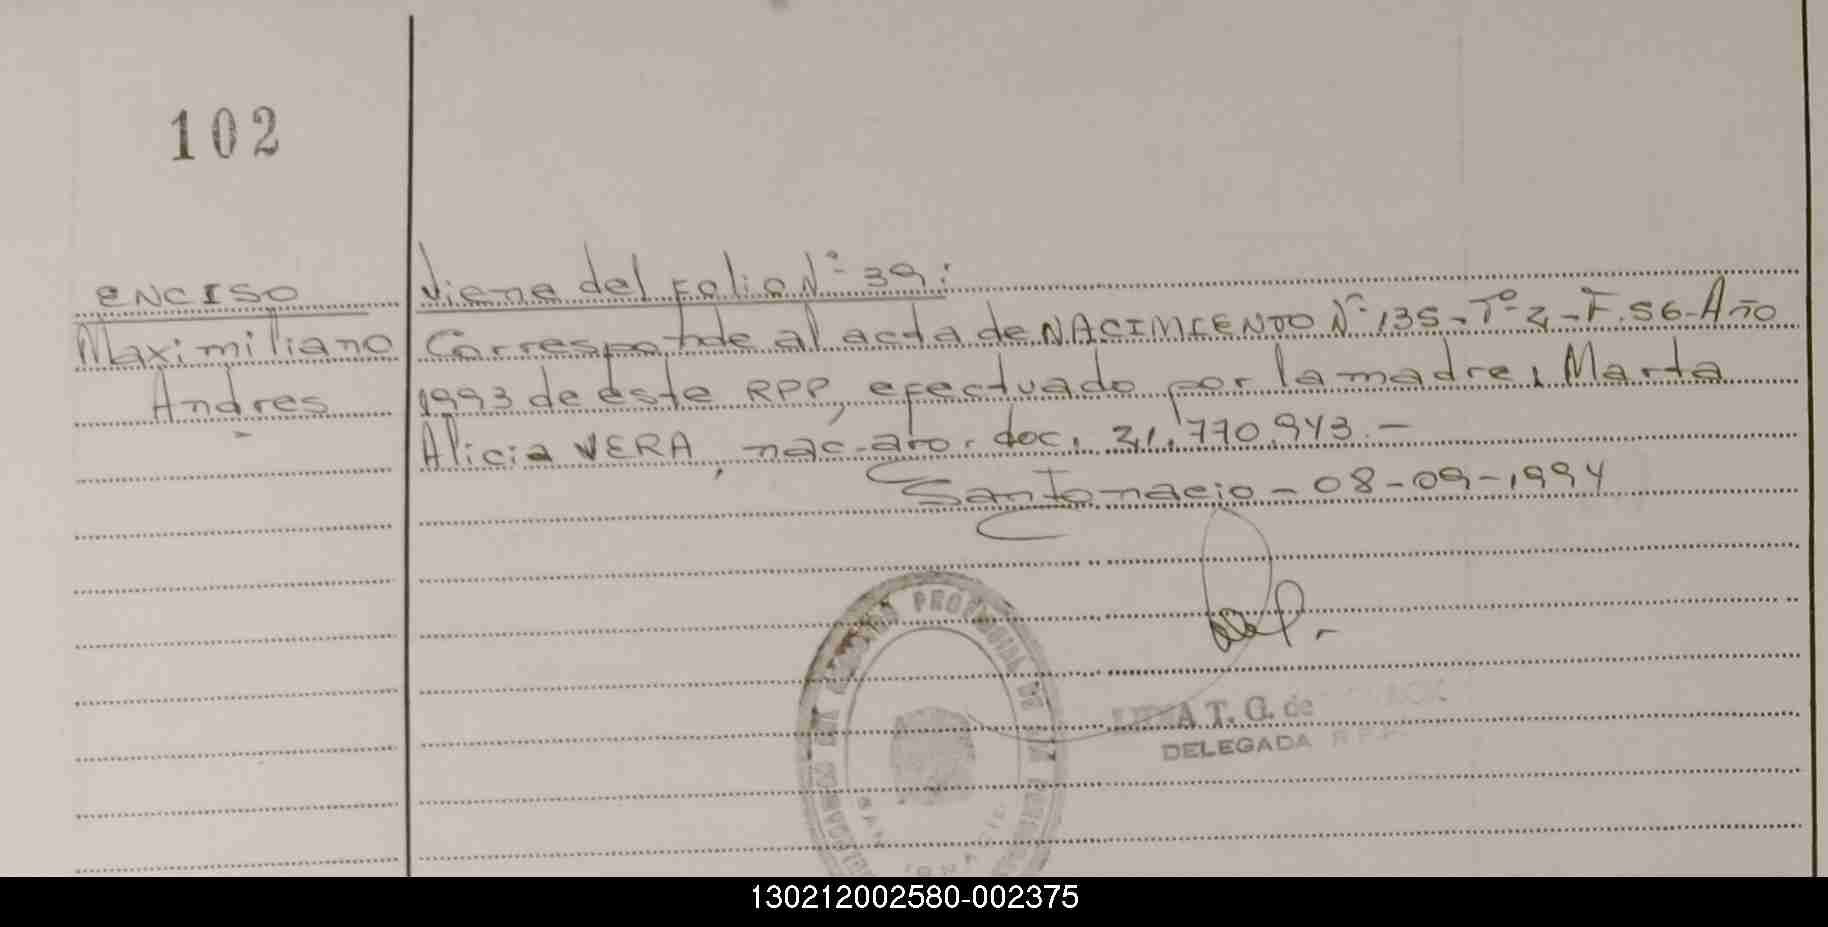 102
ENCISO
Maximiliano
Andres
Viene del Folio N° 39:
Corresponde al acta de NACIMIENTO N° 135 - T° 2 - F. 56 - Año
1993 de este RPP, efectuado por la madre, Marta
Alicia VERA, nac. arg. doc. 21.770.943.-
San Ignacio - 08-09-1994
PROVINCIAL DE
SAN IGNACIO
A T. G. de
DELEGADA R.P.P.
130212002580-002375